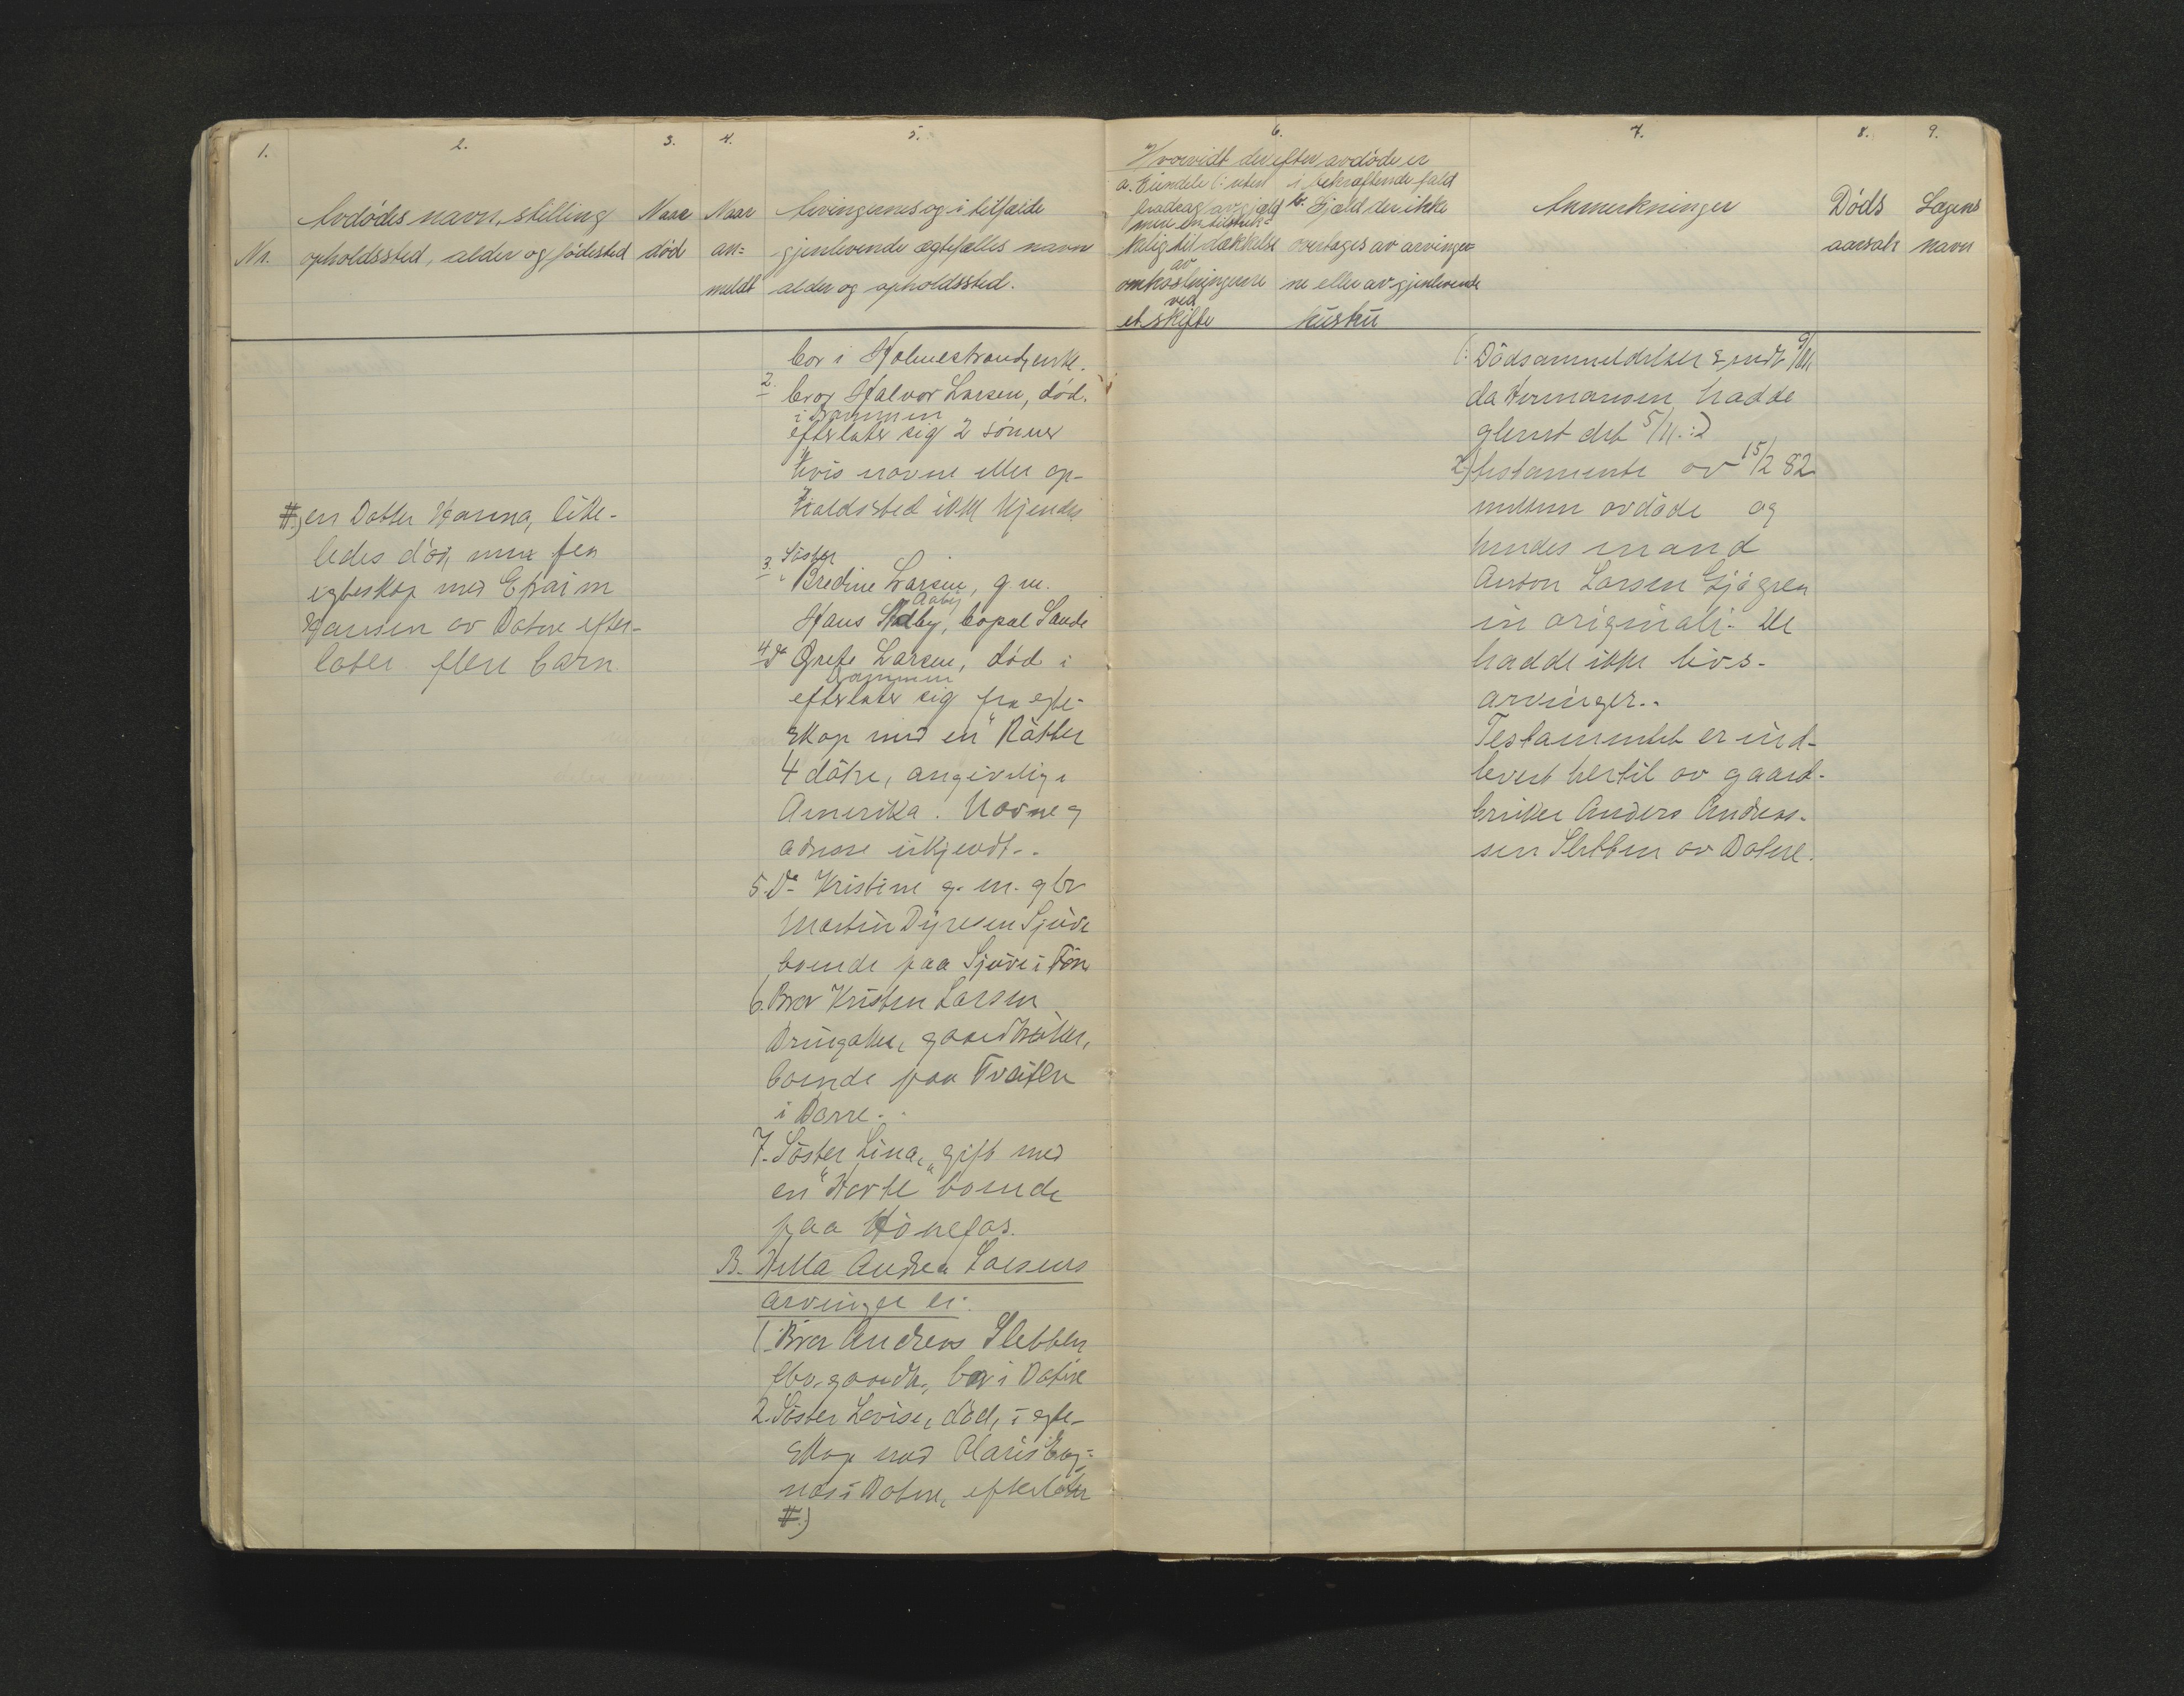 1.
2.
3.
4.
5.
6.
7.
8.
9.
Nr.
Avdødes navn, stilling
opholdssted, alder og fødested
Naar
død
Naar
an-
meldt
Arvingernes og i tilfælde
gjenlevende ægtefælles navn
alder og opholdssted.
Hvorvidt der efter avdøde er
a. Eiendele (: uten
fradrag av gjæld
mere en tilstræk-
kelig til dækkelse
av
omkostningerne
ved
et skifte
i bekræftende fald
b. Gjæld der ikke
overtages av arvinger-
ne eller av gjenlevende
hustru
Anmerkninger
Døds
aarsak
Lægens
navn
#.) en Datter Hanna, like-
ledes død, men fra
egteskap med
Hansen av Botne efter-
later flere barn
bor i Holmestrand, enke.
2. bror Halvor Larsen, død.
i Drammen
efterlater sig 2 sønner
hvis navne eller op-
holdssted ikke kjendes
3. Søster
Bredine Larsen, g. m.
Aaby
Hans bopæl Sande
4. do Grete Larsen, død i
Drammen
efterlater sig fra egte-
skap med en
4 døtre, angivelig i
Amerika. Navne og
adresse ukjendt..
5. do Kristine g. m. gbr
Martin Dyresen Sjuve
boende paa Sjuve i Tøn
6. Bror Kristen Larsen
gaardbruker,
boende paa Tveiten
i Borre..
7. Søster Lina, gift med
en boende
paa Hønefos.
B. Andrea Larsens
arvinger er:
1. Bror Andreas Slettten
fhv. gaardbr., bor i Botne
2. Søster Lovise, død, i egte-
skap med
i Botne, efterlater
#.)
(: Dødsanmeldelsen sendt 9/11,
da Hermansen hadde
glemt det 5/11. :)
2) testamente av 15/2 82
mellem avdøde og
hendes mand
Anton Larsen Sjøgren
in originali. De
hadde ikke livs-
arvinger..
Testamentet er ind-
levert hertil av gaard-
bruker Anders Andreas-
sen Sletten av Botne.